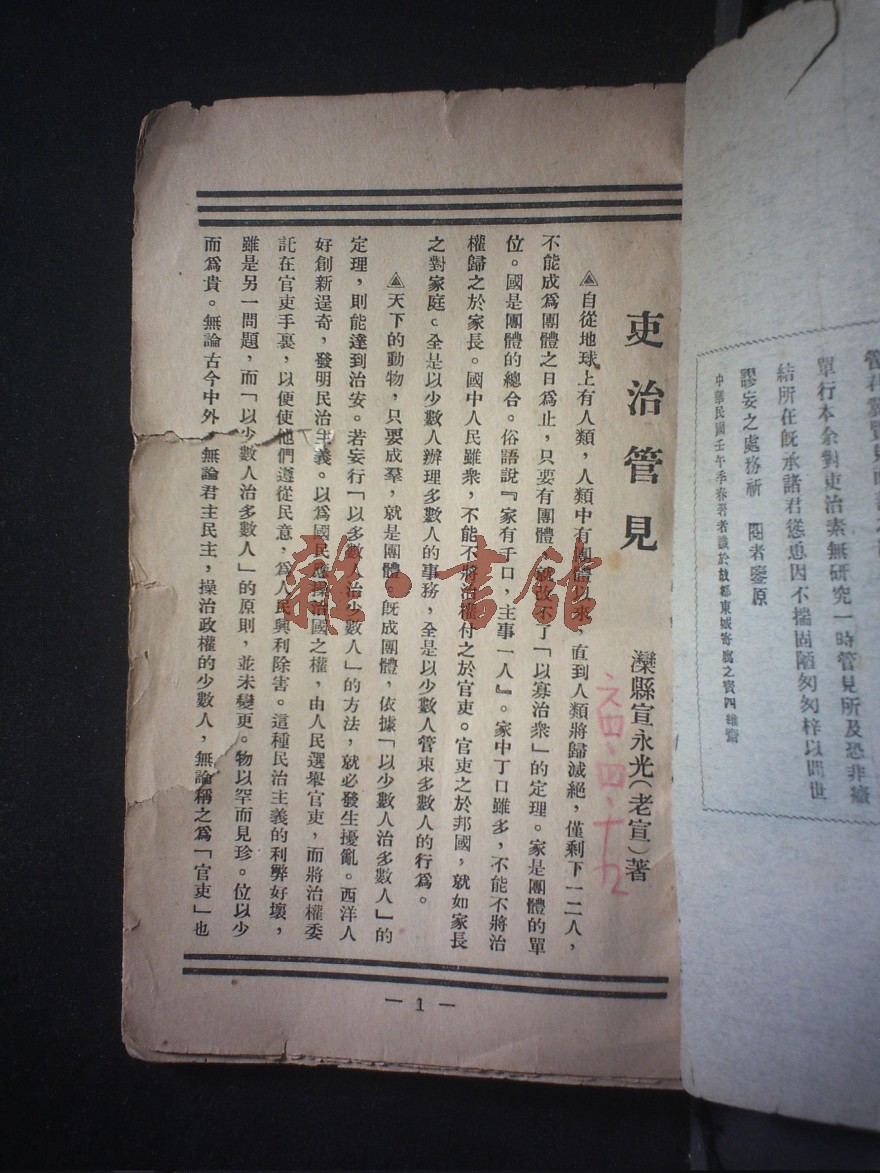 營
單行本余對吏治素無研究一時管見所及恐非癥
結所在旣承諸君慫恿因不揣固陋匆匆梓以問世
謬妄之處務祈　閱者鑒原
中華民國壬午季春著者識於故都東城寄廬之賓四維齋
吏治管見
灤縣宣永光(老宣)著
六四·四·十九
自從地球上有人類，人類中有團體以來，直到人類將歸滅絕，僅剩下一二人，
不能成爲團體之日爲止，只要有團體，就改不了「以寡治衆」的定理。家是團體的單
位。國是團體的總合。俗語說『家有千口，主事一人』。家中丁口雖多，不能不將治
權歸之於家長。國中人民雖衆，不能不將治權付之於官吏。官吏之於邦國，就如家長
之對家庭。全是以少數人辦理多數人的事務，全是以少數人管束多數人的行爲。
天下的動物，只要成羣，就是團體。旣成團體，依據「以少數人治多數人」的
定理，則能達到治安。若妄行「以多數人治少數人」的方法，就必發生擾亂。西洋人
好創新逞奇，發明民治主義。以爲國民應操治國之權，由人民選舉官吏，而將治權委
託在官吏手裏，以便使他們遵從民意，爲人民興利除害。這種民治主義的利弊好壞，
雖是另一問題，而「以少數人治多數人」的原則，並未變更。物以罕而見珍。位以少
而爲貴。無論古今中外，無論君主民主，操治政權的少數人，無論稱之爲「官吏」也
— 1 —
雜·書館